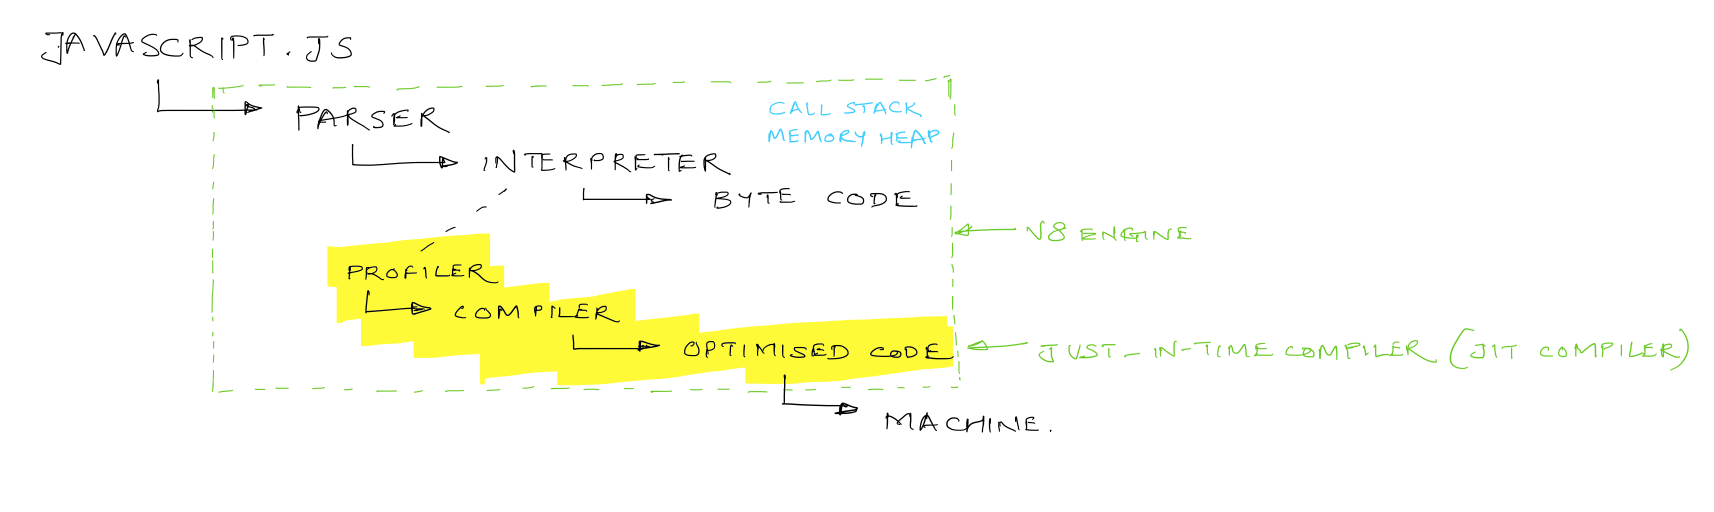 JAVASCRIPT.JS
PARSER
CALL STACK
MEMORY HEAP
INTERPRETER
BYTE CODE
V8 ENGINE
PROFILER
COMPILER
OPTIMISED CODE
JUST-IN-TIME COMPILER (JIT COMPILER)
MACHINE.